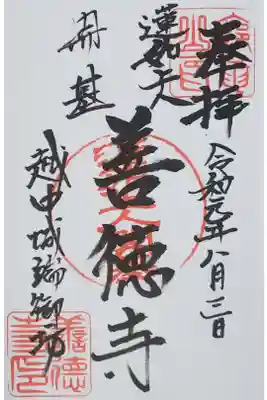 奉拝
令和元年八月三日
蓮如上人
開基
善德寺
越中城端御坊